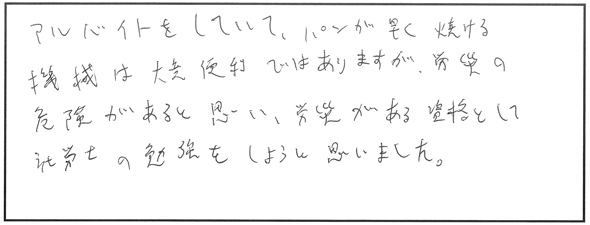 アルバイトをしていて、パンが早く焼ける
機械は大変便利ではありますが、労災の
危険があると思い、労災がある資格として
社労士の勉強をしようと思いました。